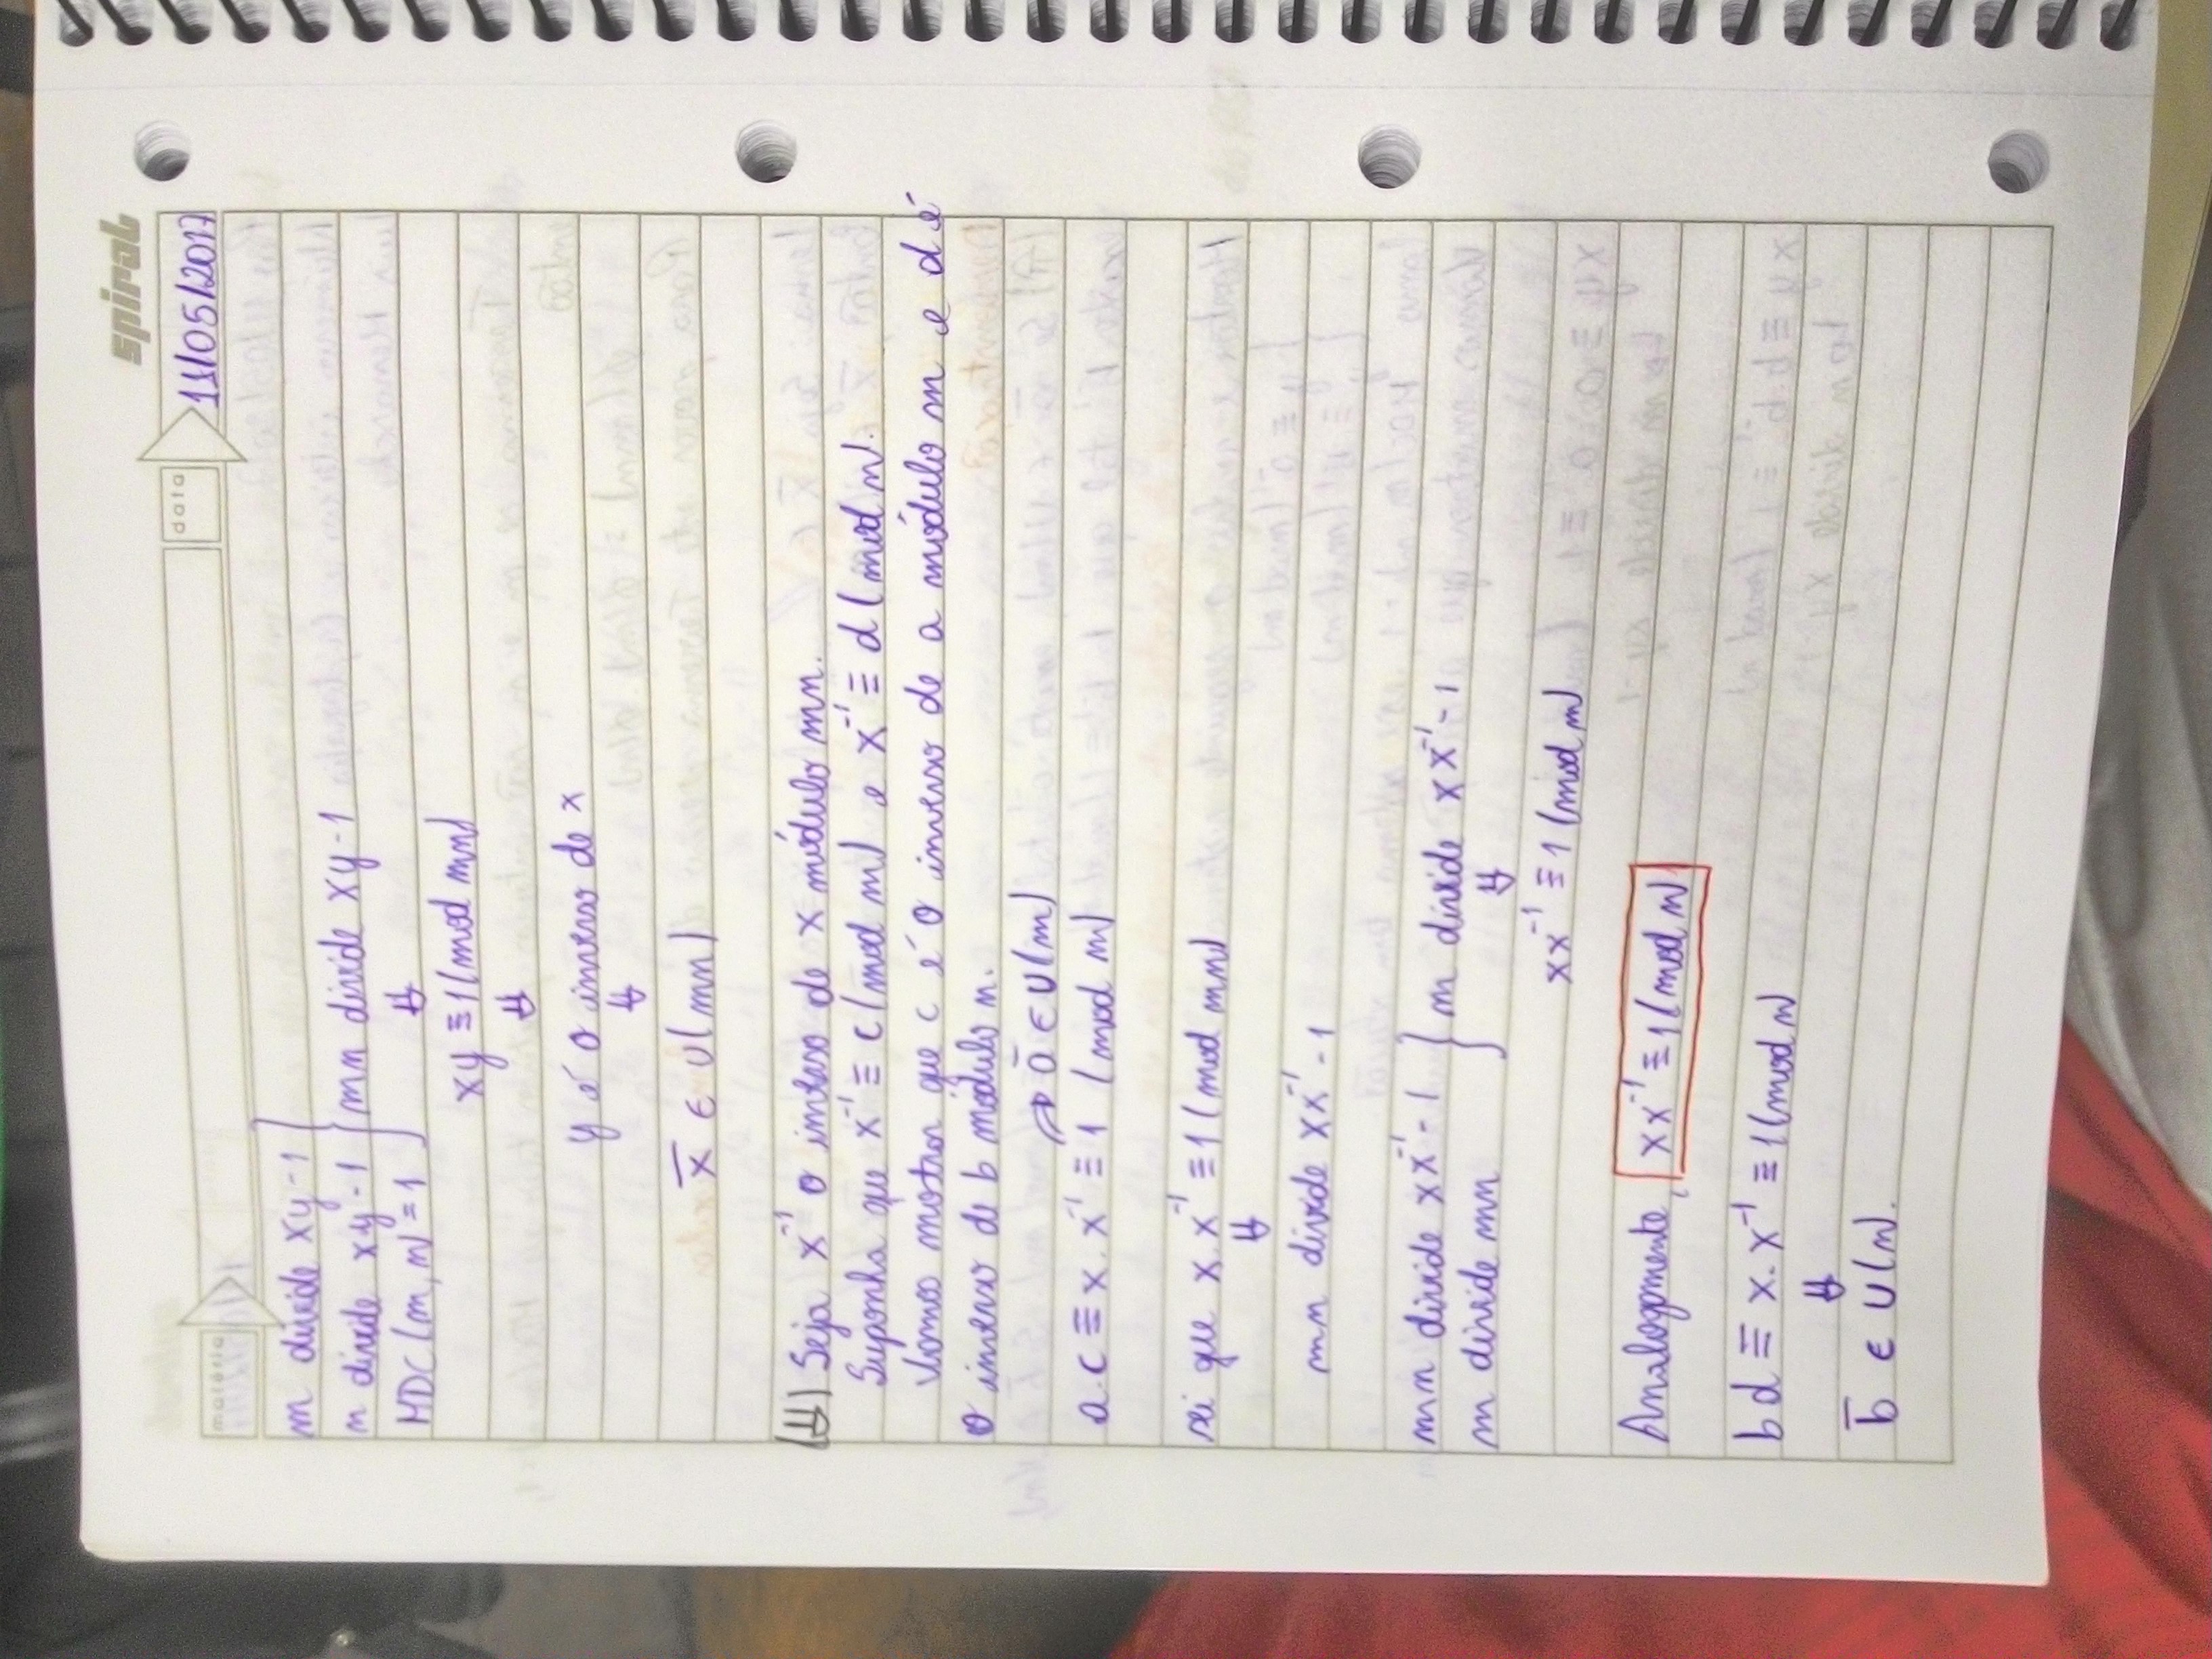 spiral
matéria
data
11/05/2017
m divide xy-1
n divide xy-1
MDC(m,n)=1
mn divide xy-1
⇓
xy ≡ 1(mod mn)
⇓
y é o inverso de x
⇓
x̅ ∈ U(mn)
(⇓) Seja x⁻¹ o inverso de x módulo mn.
Suponha que x⁻¹ ≡ c(mod m) e x⁻¹ ≡ d(mod n).
Vamos mostrar que c é o inverso de a módulo m e d é
o inverso de b módulo n.
→ a̅ ∈ U(m)
a.c ≡ x.x⁻¹ ≡ 1 (mod m)
sei que x.x⁻¹ ≡ 1(mod mn)
⇓
mn divide xx⁻¹-1
mn divide xx⁻¹-1
m divide mn
m divide xx⁻¹-1
⇓
xx⁻¹ ≡ 1(mod m)
Analogamente, xx⁻¹ ≡ 1(mod n)
bd ≡ x.x⁻¹ ≡ 1(mod n)
⇓
b̅ ∈ U(n).